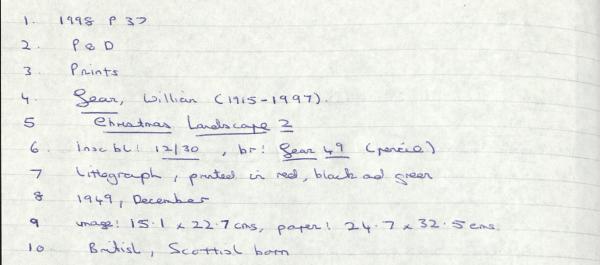 1. 1998 P 37
2. P & D
3. Prints
4. Gear, William (1915-1997).
5 Christmas Landscape 2
6. insc bl: 12/30, br: Gear 49 (pencil)
7 Lithograph, printed in red, black and green
8 1949, December
9 image: 15.1 x 22.7 cms, paper: 24.7 x 32.5 cms.
10 British, Scottish born